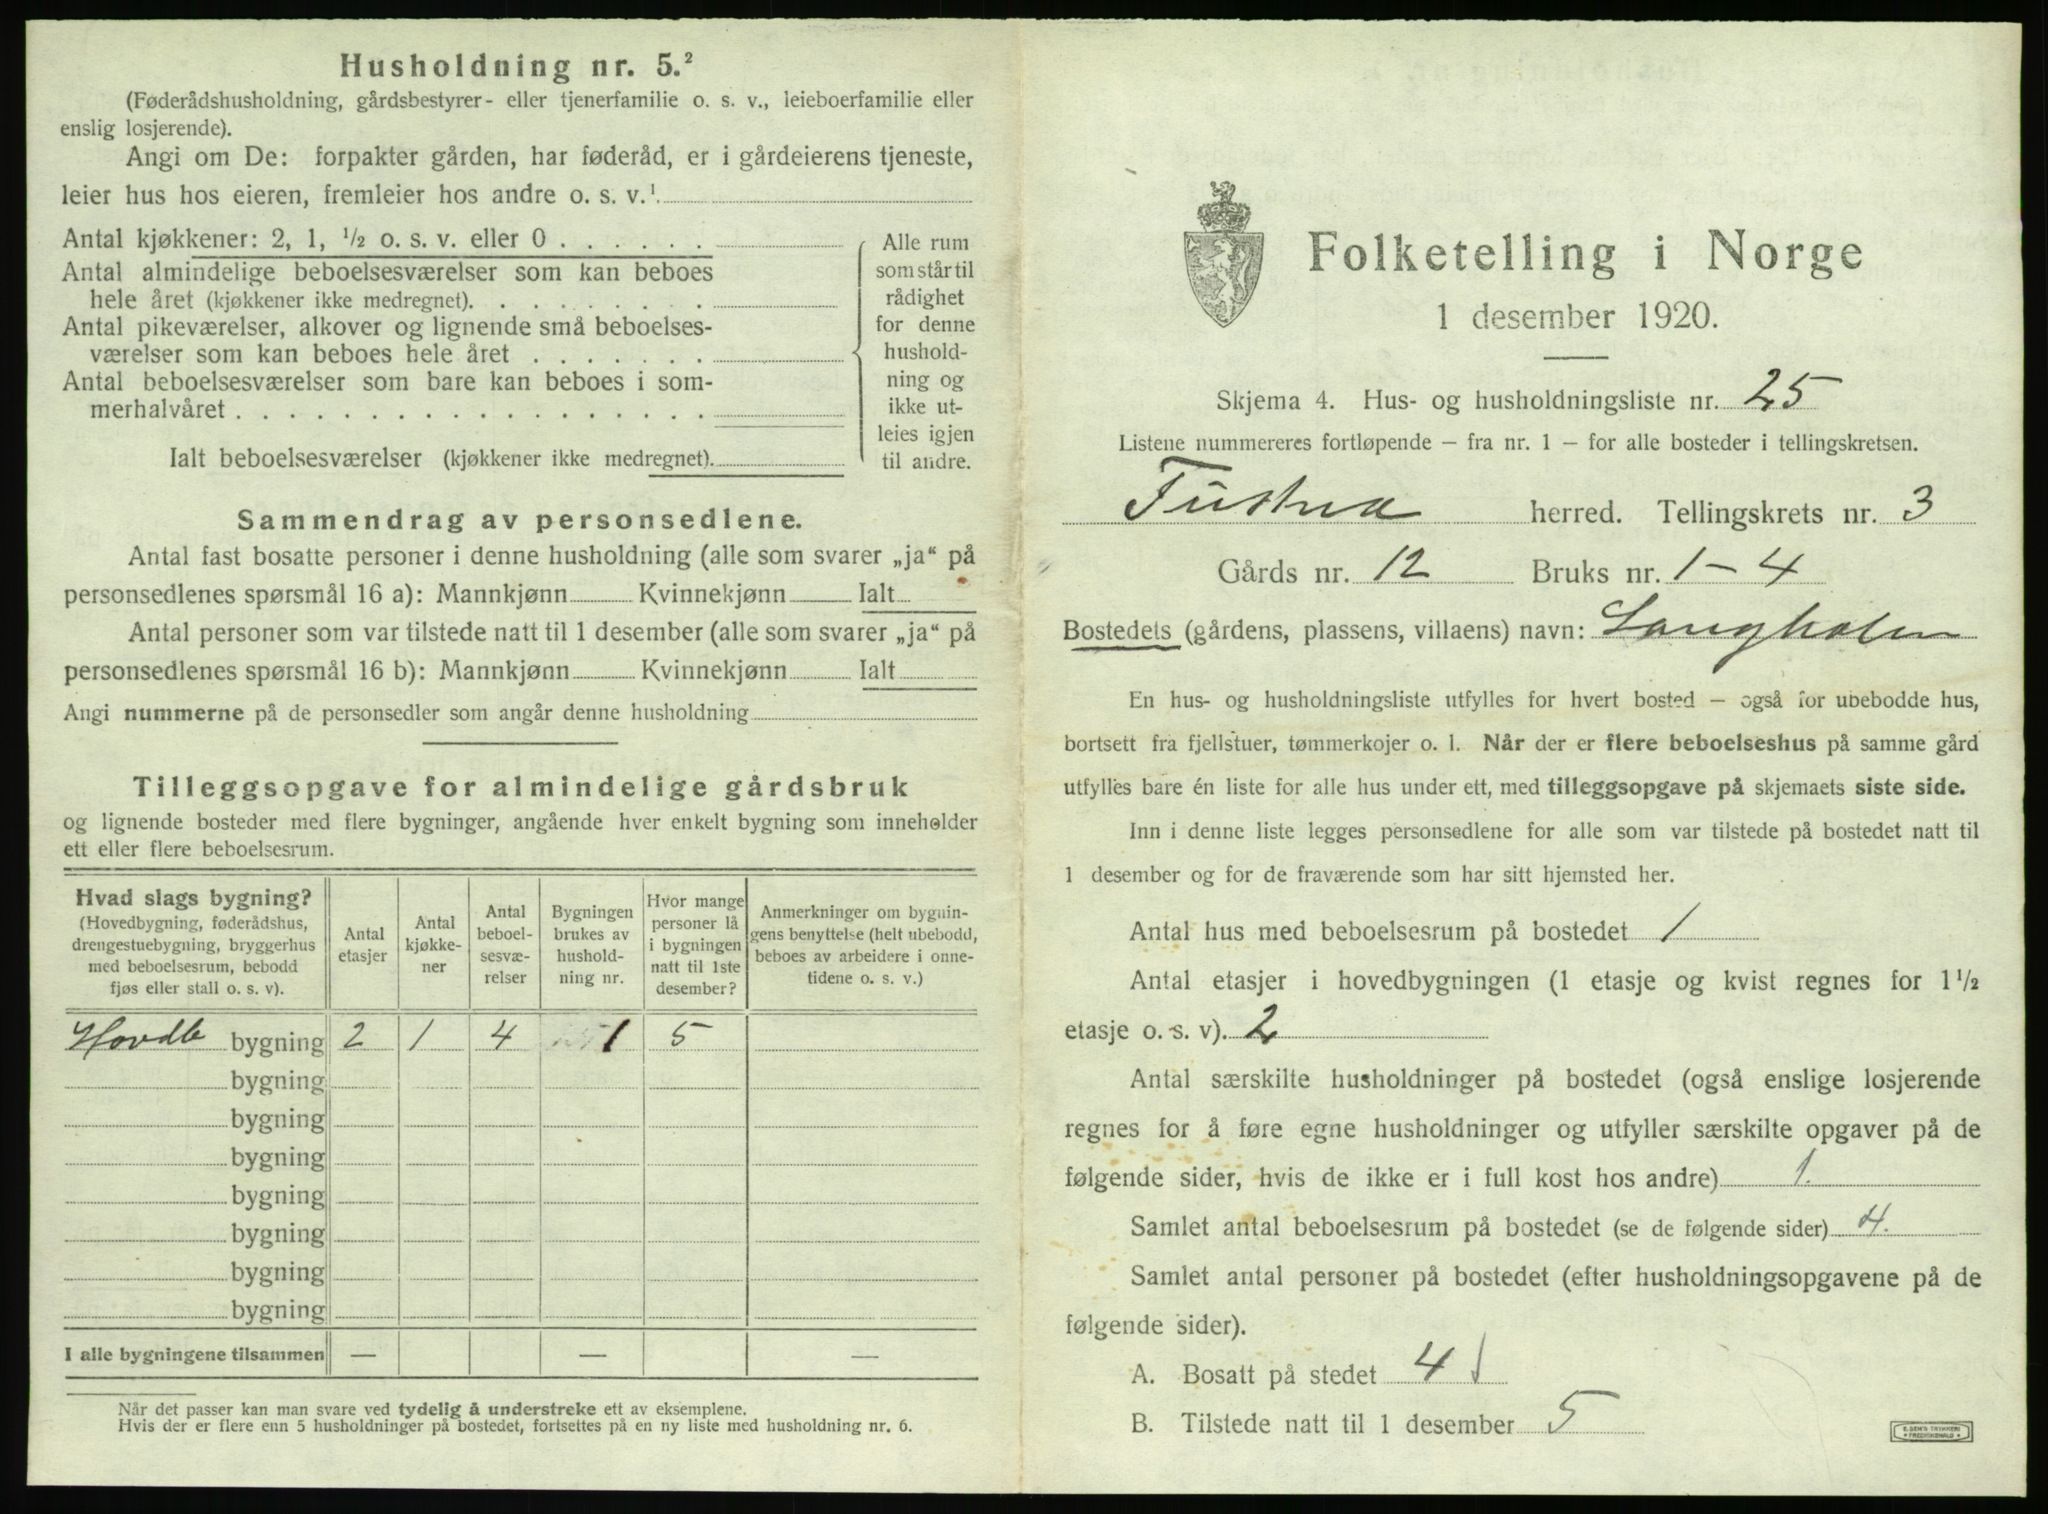 Husholdning nr. 5.²
(Føderådshusholdning, gårdsbestyrer- eller tjenerfamilie o. s. v., leieboerfamilie eller
enslig losjerende).
Angi om De: forpakter gården, har føderåd, er i gårdeierens tjeneste,
leier hus hos eieren, fremleier hos andre o. s. v.¹
Antal kjøkkener: 2, 1, ½ o. s. v. eller 0 . . . . . .
Antal almindelige beboelsesværelser som kan beboes
hele året (kjøkkener ikke medregnet). . . . . . . . .
Antal pikeværelser, alkover og lignende små beboelses-
værelser som kan beboes hele året . . . . . . .
Antal beboelsesværelser som bare kan beboes i som-
merhalvåret . . . . . . . . . . . . . . . . . .
Ialt beboelsesværelser (kjøkkener ikke medregnet).
Alle rum
som står til
rådighet
for denne
hushold-
ning og
ikke ut-
leies igjen
til andre.
Sammendrag av personsedlene.
Antal fast bosatte personer i denne husholdning (alle som svarer „ja“ på
personsedlenes spørsmål 16 a): Mannkjønn Kvinnekjønn Ialt
Antal personer som var tilstede natt til 1 desember (alle som svarer „ja“ på
personsedlenes spørsmål 16 b): Mannkjønn Kvinnekjønn Ialt
Angi nummerne på de personsedler som angår denne husholdning
Tilleggsopgave for almindelige gårdsbruk
og lignende bosteder med flere bygninger, angående hver enkelt bygning som inneholder
ett eller flere beboelsesrum.
Hvad slags bygning?
(Hovedbygning, føderådshus,
drengestuebygning, bryggerhus
med beboelsesrum, bebodd
fjøs eller stall o. s. v).
Antal
etasjer
Antal
kjøkke-
ner
Antal
beboel-
sesvæ-
relser
Bygningen
brukes av
hushold-
ning nr.
Hvor mange
personer lå
i bygningen
natt til 1ste
desember?
Anmerkninger om bygnin-
gens benyttelse (helt ubebodd,
beboes av arbeidere i onne-
tidene o. s. v.)
Hovdb bygning 2 1 4 1 5
bygning
bygning
bygning
bygning
bygning
bygning
bygning
I alle bygningene tilsammen — — —
Når det passer kan man svare ved tydelig å understreke ett av eksemplene.
Hvis der er flere enn 5 husholdninger på bostedet, fortsettes på en ny liste med husholdning nr. 6.
Folketelling i Norge
1 desember 1920.
Skjema 4. Hus- og husholdningsliste nr. 25
Listene nummereres fortløpende – fra nr. 1 – for alle bosteder i tellingskretsen.
Tustna herred. Tellingskrets nr. 3
Gårds nr. 12 Bruks nr. 1-4
Bostedets (gårdens, plassens, villaens) navn: Langholm
En hus- og husholdningsliste utfylles for hvert bosted – også for ubebodde hus,
bortsett fra fjellstuer, tømmerkojer o. l. Når der er flere beboelseshus på samme gård
utfylles bare én liste for alle hus under ett, med tilleggsopgave på skjemaets siste side.
Inn i denne liste legges personsedlene for alle som var tilstede på bostedet natt til
1 desember og for de fraværende som har sitt hjemsted her.
Antal hus med beboelsesrum på bostedet 1
Antal etasjer i hovedbygningen (1 etasje og kvist regnes for 1½
etasje o. s. v). 2
Antal særskilte husholdninger på bostedet (også enslige losjerende
regnes for å føre egne husholdninger og utfyller særskilte opgaver på de
følgende sider, hvis de ikke er i full kost hos andre) 1.
Samlet antal beboelsesrum på bostedet (se de følgende sider) 4.
Samlet antal personer på bostedet (efter husholdningsopgavene på de
følgende sider).
A. Bosatt på stedet 4
B. Tilstede natt til 1 desember 5